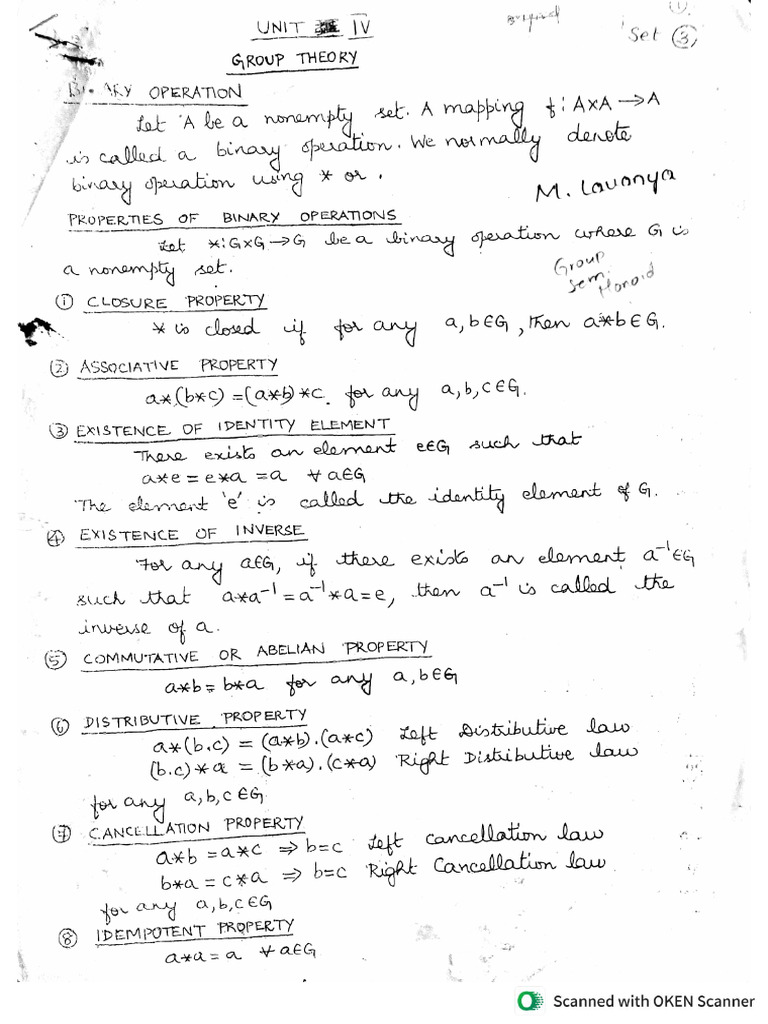 (1)
UNIT IV
Set (3)
GROUP THEORY
BINARY OPERATION
Let A be a nonempty set. A mapping f: A×A → A
is called a binary operation. We normally denote
binary operation using * or .
M. Lavanya
PROPERTIES OF BINARY OPERATIONS
Let *: G×G → G be a binary operation where G is
a nonempty set.
Group
Sem
Monoid
① CLOSURE PROPERTY
* is closed if for any a, b ∈ G, then a*b ∈ G.
② ASSOCIATIVE PROPERTY
a*(b*c) = (a*b)*c. for any a, b, c ∈ G.
③ EXISTENCE OF IDENTITY ELEMENT
There exists an element e∈G such that
a*e = e*a = a ∀ a∈G
The element 'e' is called the identity element of G.
④ EXISTENCE OF INVERSE
For any a∈G, if there exists an element a⁻¹∈G
such that a*a⁻¹ = a⁻¹*a = e, then a⁻¹ is called the
inverse of a.
⑤ COMMUTATIVE OR ABELIAN PROPERTY
a*b = b*a for any a, b∈G
⑥ DISTRIBUTIVE PROPERTY
a*(b.c) = (a*b).(a*c) Left Distributive law
(b.c)*a = (b*a).(c*a) Right Distributive law
for any a, b, c ∈G
⑦ CANCELLATION PROPERTY
a*b = a*c ⇒ b=c Left cancellation law
b*a = c*a ⇒ b=c Right Cancellation law
for any a, b, c ∈G
⑧ IDEMPOTENT PROPERTY
a*a = a ∀ a∈G
Scanned with OKEN Scanner